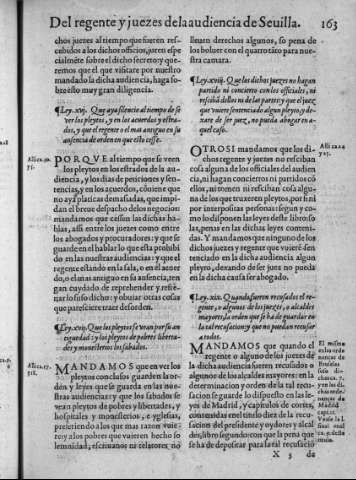 Del regente y juezes dela audiencia de Sevilla. 163
chos juezes al tiempo que fueren res-
cebidos a los dichos officios, juren espe
cialmẽte sobre el dicho secreto y que-
remos que el que visitare por nuestro
mandado la dicha audiencia, haga so-
bre esto muy gran diligencia.
¶Ley .xvj. Que aya silencio al tiempo de se
ver los pleytos, y en los acuerdos y estra-
dos, y que el regente o el mas antiguo en su
ausencia de orden en que esto cesse.
PORQVE al tiempo que se veen
los pleytos en los estrados de la audi-
encia, y los dias de peticiones y sen-
tencias, y en los acuerdos, cõuiene que
no aya platicas demasiadas, que impi-
dan el breue despacho delos negocios:
mandamos que cessen las dichas ha-
blas, assi entre los juezes como entre
los abogados y procuradores: y que se
guarde en el hablar lo que esta prohibi
do en las nuestras audiencias: y que el
regente estando en la sala, o en el acuer
do, o el mas antiguo en su ausencia, ten
gan cuydado de reprehender y refre-
nar lo suso dicho: y obuiar otras cosas
que paresciere traer desorden.
¶Ley .xvij. Que los pleytos se vean por su an
tiguedad: y los pleytos de pobres liberta-
des y monesterios los sabados.
MANDAMOS que en ver los
pleytos conclusos guarden la or-
den y leyes que se guarda en las nue-
stras audiencias: y que los sabados se
vean pleytos de pobres y libertades, y
hospitales y monesterios, e yglesias,
prefiriendo a los que mas razon vuie-
re: y a los pobres que vuieren hecho so
lennidad, escriuanos ni relatores no
lleuen derechos algunos, so pena de
los boluer con el quarto tãto para nue-
stra camara.
¶Ley .xviij. Que los dichos juezes no hagan
partido ni concierto con los officiales, ni
resciban dadiuas de las partes: y que el juez
que vuiere sentenciado algun pleyto, y de-
xare de ser juez, no pueda abogar en a-
quel caso.
OTROSI mandamos que los di-
chos regente y juezes no resciban
cosa alguna de los officiales del audien
cia, ni hagan conciertos ni partidos cõ
ellos, ni tomen ni resciban cosa algu-
na de los que traxeren pleytos, por si ni
por interpositas personas: segun y co-
mo lo disponen las leyes deste libro: so
las penas en las dichas leyes conteni-
das. Y mandamos que ninguno de los
dichos juezes y regente que vuierẽ sen
tenciado en la dicha audiencia algun
pleyto, dexando de ser juez no pueda
en la dicha causa ser abogado.
¶Ley .xix. Quando fueren recusados el re-
gente, o algunos de los juezes, o alcaldes
mayores: la orden que se ha de guardar en
la tal recusacion: y que no puedan recusar
a todos.
MANDAMOS que quando el
regente o alguno de los juezes de
la dicha audiencia fueren recusados o
algunos de los alcaldes mayores: en la de-
terminacion y orden de la tal recusa-
cion se guarde lo dispuesto en las le-
yes de Madrid, y capitulos de cortes,
contenidas en el titulo diez de la recu-
sacion del presidente y oydores y alcal
des, libro segundo: con que la pena que
se ha de depositar para la tal recusaciõ
X 3 de